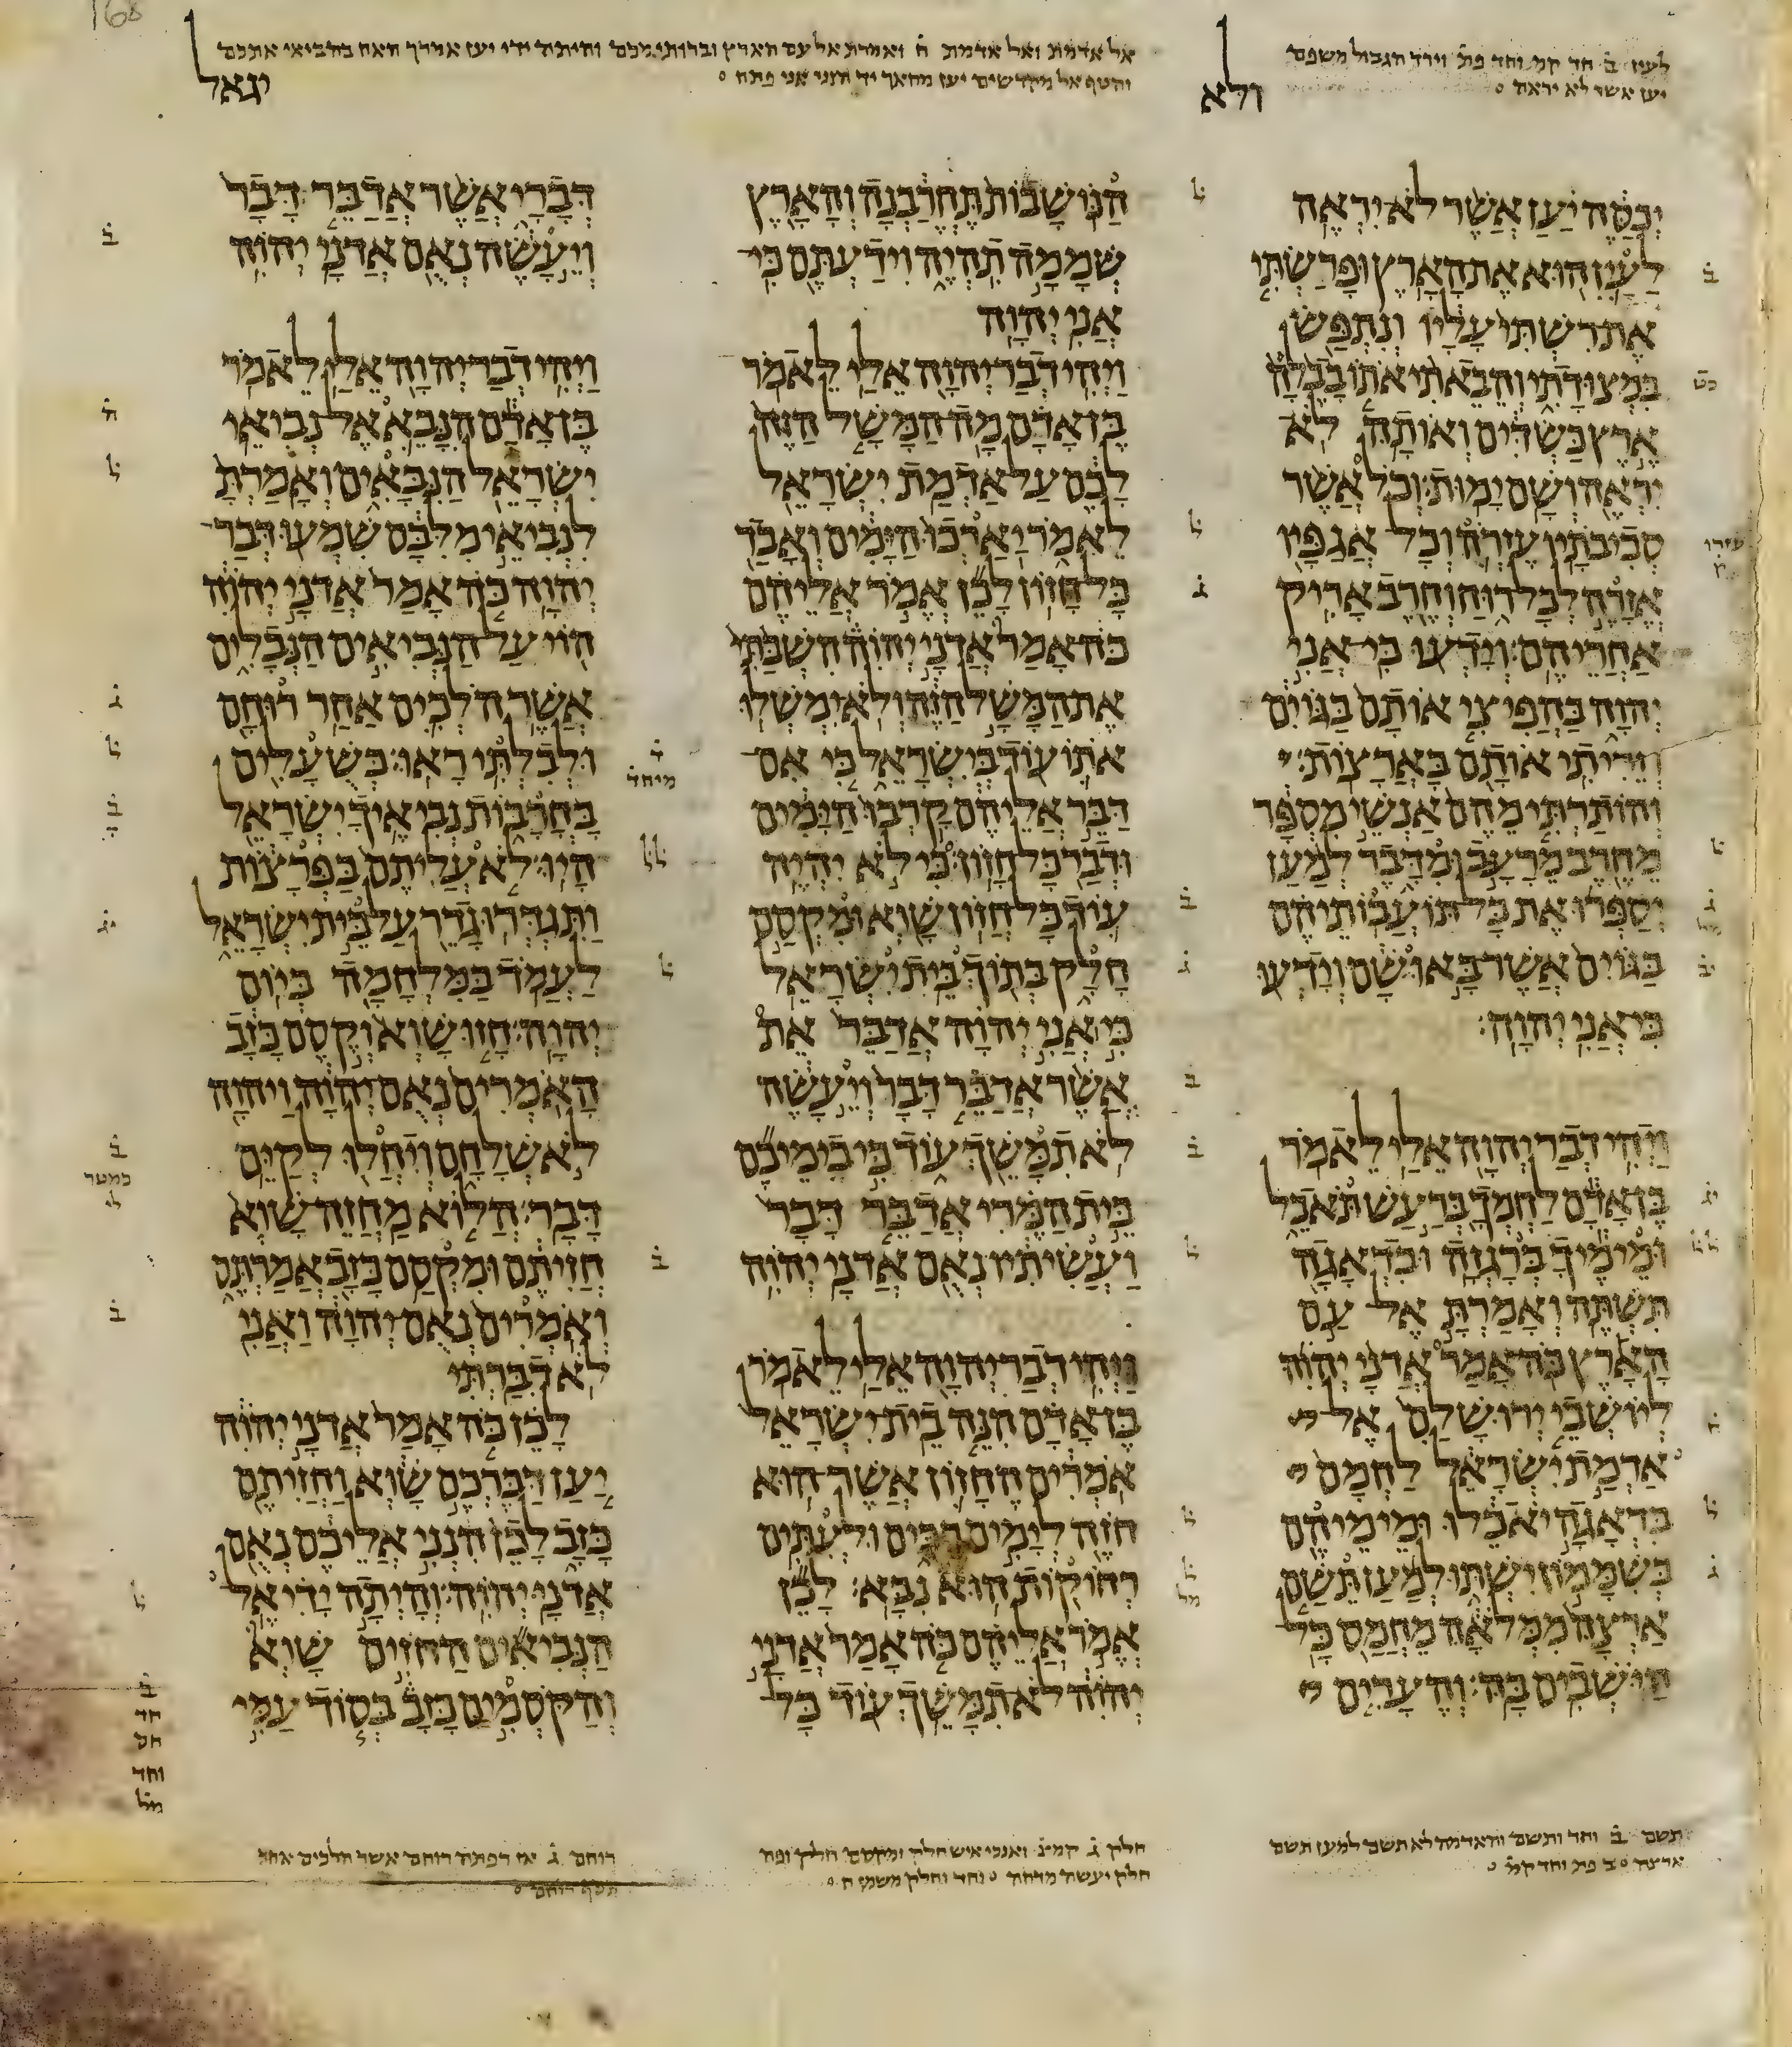 לעין ב חד קמ וחד פת וירד הגבול משפם
יען אשר לא יראה
ולא
אל אדמת ואל אדמת ח ואמרת אל עם הארץ וברותי מכם והיתה ידי יען אמרך האח בהביאי אתכם
והטף אל מקדשים יען מחאך יד הנני אני פתח
יגאל
יכסה יען אשר לא יראה
לעין הוא את הארץ ופרשתי
את רשתי עליו ונתפש
במצודתי והבאתי אתו בבלה
ארץ כשדים ואותה לא
יראה ושם ימות׃ וכל אשר
סביבתיו עזרה וכל אגפיו
אזרה לכל רוח וחרב אריק
אחריהם׃ וידעו כי אני
יהוה בהפיצי אותם בגוים
וזריתי אותם בארצות׃
והותרתי מהם אנשי מספר
מחרב מרעב ומדבר למען
יספרו את כל תועבותיהם
בגוים אשר באו שם וידעו
כי אני יהוה׃
ויהי דבר יהוה אלי לאמר
בן אדם לחמך ברעש תאכל
ומימיך ברגזה ובדאגה
תשתה ואמרת אל עם
הארץ כה אמר אדני יהוה
ליושבי ירושלם אל
אדמת ישראל לחמם
בדאגה יאכלו ומימיהם
בשממון ישתו למען תשם
ארצה ממלאה מחמס כל
הישבים בה׃ והערים
הנושבות תחרבנה והארץ
שממה תהיה וידעתם כי
אני יהוה
ויהי דבר יהוה אלי לאמר
בן אדם מה המשל הזה
לכם על אדמת ישראל
לאמר יארכו הימים ואבד
כל חזון לכן אמר אליהם
כה אמר אדני יהוה השבתי
את המשל הזה ולא ימשלו
אתו עוד בישראל כי אם
דבר אליהם קרבו הימים
ודבר כל חזון׃ כי לא יהיה
עוד כל חזון שוא ומקסם
חלק בתוך בית ישראל
כי אני יהוה אדבר את
אשר אדבר דבר ויעשה
לא תמשך עוד כי בימיכם
בית המרי אדבר דבר
ועשיתיו נאם אדני יהוה
ויהי דבר יהוה אלי לאמר
בן אדם הנה בית ישראל
אמרים החזון אשר הוא
חזה לימים רבים ולעתים
רחוקות הוא נבא׃ לכן
אמר אליהם כה אמר אדני
יהוה לא תמשך עוד כל
דברי אשר אדבר דבר
ויעשה נאם אדני יהוה
ויהי דבר יהוה אלי לאמר
בן אדם הנבא אל נביאי
ישראל הנבאים ואמרת
לנביאי מלבם שמעו דבר
יהוה כה אמר אדני יהוה
הוי על הנביאים הנבלים
אשר הלכים אחר רוחם
ולבלתי ראו׃ כשעלים
בחרבות נביאיך ישראל
היו׃ לא עליתם בפרצות
ותגדרו גדר על בית ישראל
לעמד במלחמה ביום
יהוה׃ חזו שוא וקסם כזב
האמרים נאם יהוה ויהוה
לא שלחם ויחלו לקים
דבר׃ הלוא מחזה שוא
חזיתם ומקסם כזב אמרתם
ואמרים נאם יהוה ואני
לא דברתי
לכן כה אמר אדני יהוה
יען דברכם שוא וחזיתם
כזב לכן הנני אליכם נאם
אדני יהוה׃ והיתה ידי אל
הנביאים החזים שוא
והקסמים כזב בסוד עמי
תשם ב וחד ותשם והאדמה לא תשם למען תשם
ארצה ב פת וחד קמ
חלק ג קמצ ואנכי איש חלק ומקסם חלק ופת
חלק יעשה מדחה וחד וחלק משמן ח
רוחם ג אז רפתה רוחם אשר הלכים אחר
תסף רוחם